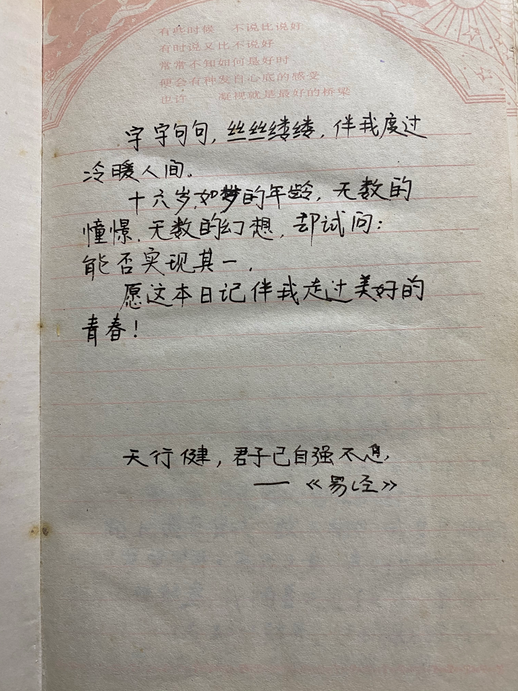 有些时候　不说比说好
有时说又比不说好
常常不知如何是好时
便会有种发自心底的感受
也许　凝视就是最好的桥梁
字字句句，丝丝缕缕，伴我度过
冷暖人间。
十六岁如梦的年龄，无数的
憧憬，无数的幻想，却试问：
能否实现其一，
愿这本日记伴我走过美好的
青春！
天行健，君子已自强不息
——《易经》